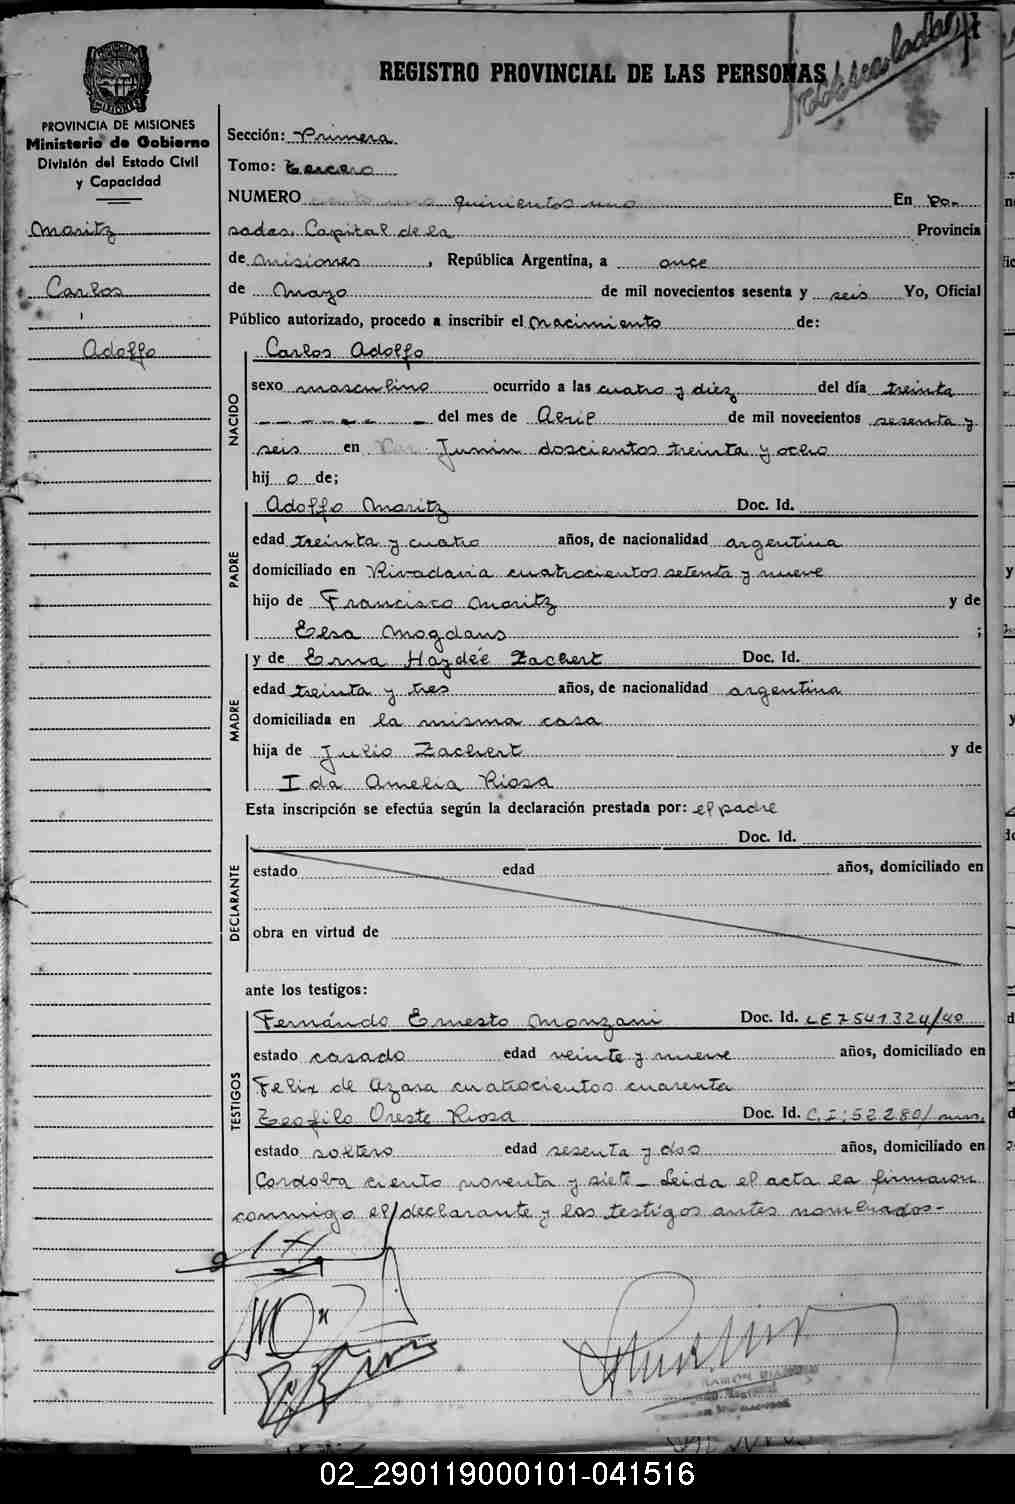 Adscaladas
REGISTRO PROVINCIAL DE LAS PERSONAS
PROVINCIA DE MISIONES
Ministerio de Gobierno
División del Estado Civil
y Capacidad
Moritz
Carlos
Adolfo
Sección: Primera
Tomo: tercero
NUMERO quinientos uno En Po-
sadas, Capital de la Provincia
de Misiones, República Argentina, a once
de Mayo de mil novecientos sesenta y seis Yo, Oficial
Público autorizado, procedo a inscribir el nacimiento de:
NACIDO
Carlos Adolfo
sexo masculino ocurrido a las cuatro y diez del día treinta
del mes de Abril de mil novecientos sesenta y
seis en Junin doscientos treinta y ocho
hij o de;
PADRE
Adolfo Moritz Doc. Id.
edad treinta y cuatro años, de nacionalidad argentina
domiciliado en Rivadavia cuatrocientos setenta y nueve
hijo de Francisco Moritz y de
Elsa Mogdans ;
MADRE
y de Erna Haydée Zachert Doc. Id.
edad treinta y tres años, de nacionalidad argentina
domiciliada en la misma casa
hija de Julio Zachert y de
Ida Amelia Riosa
Esta inscripción se efectúa según la declaración prestada por: el padre
DECLARANTE
Doc. Id.
estado edad años, domiciliado en
obra en virtud de
ante los testigos:
TESTIGOS
Fernándo Ernesto Monzani Doc. Id. LE 7541324/40
estado casado edad veinte y nueve años, domiciliado en
Felix de Azara cuatrocientos cuarenta
Teofilo Oreste Riosa Doc. Id. C.I:52280/mnes.
estado soltero edad sesenta y dos años, domiciliado en
Cordoba ciento noventa y siete - Leida el acta la firmaron
conmigo el declarante y los testigos antes nombrados-
RAMON
02_290119000101-041516